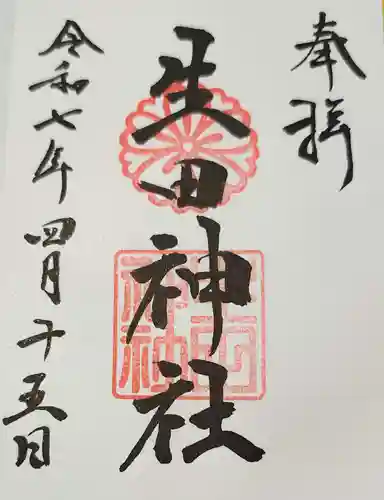 奉拝
生田神社
生田神社
令和七年四月十五日